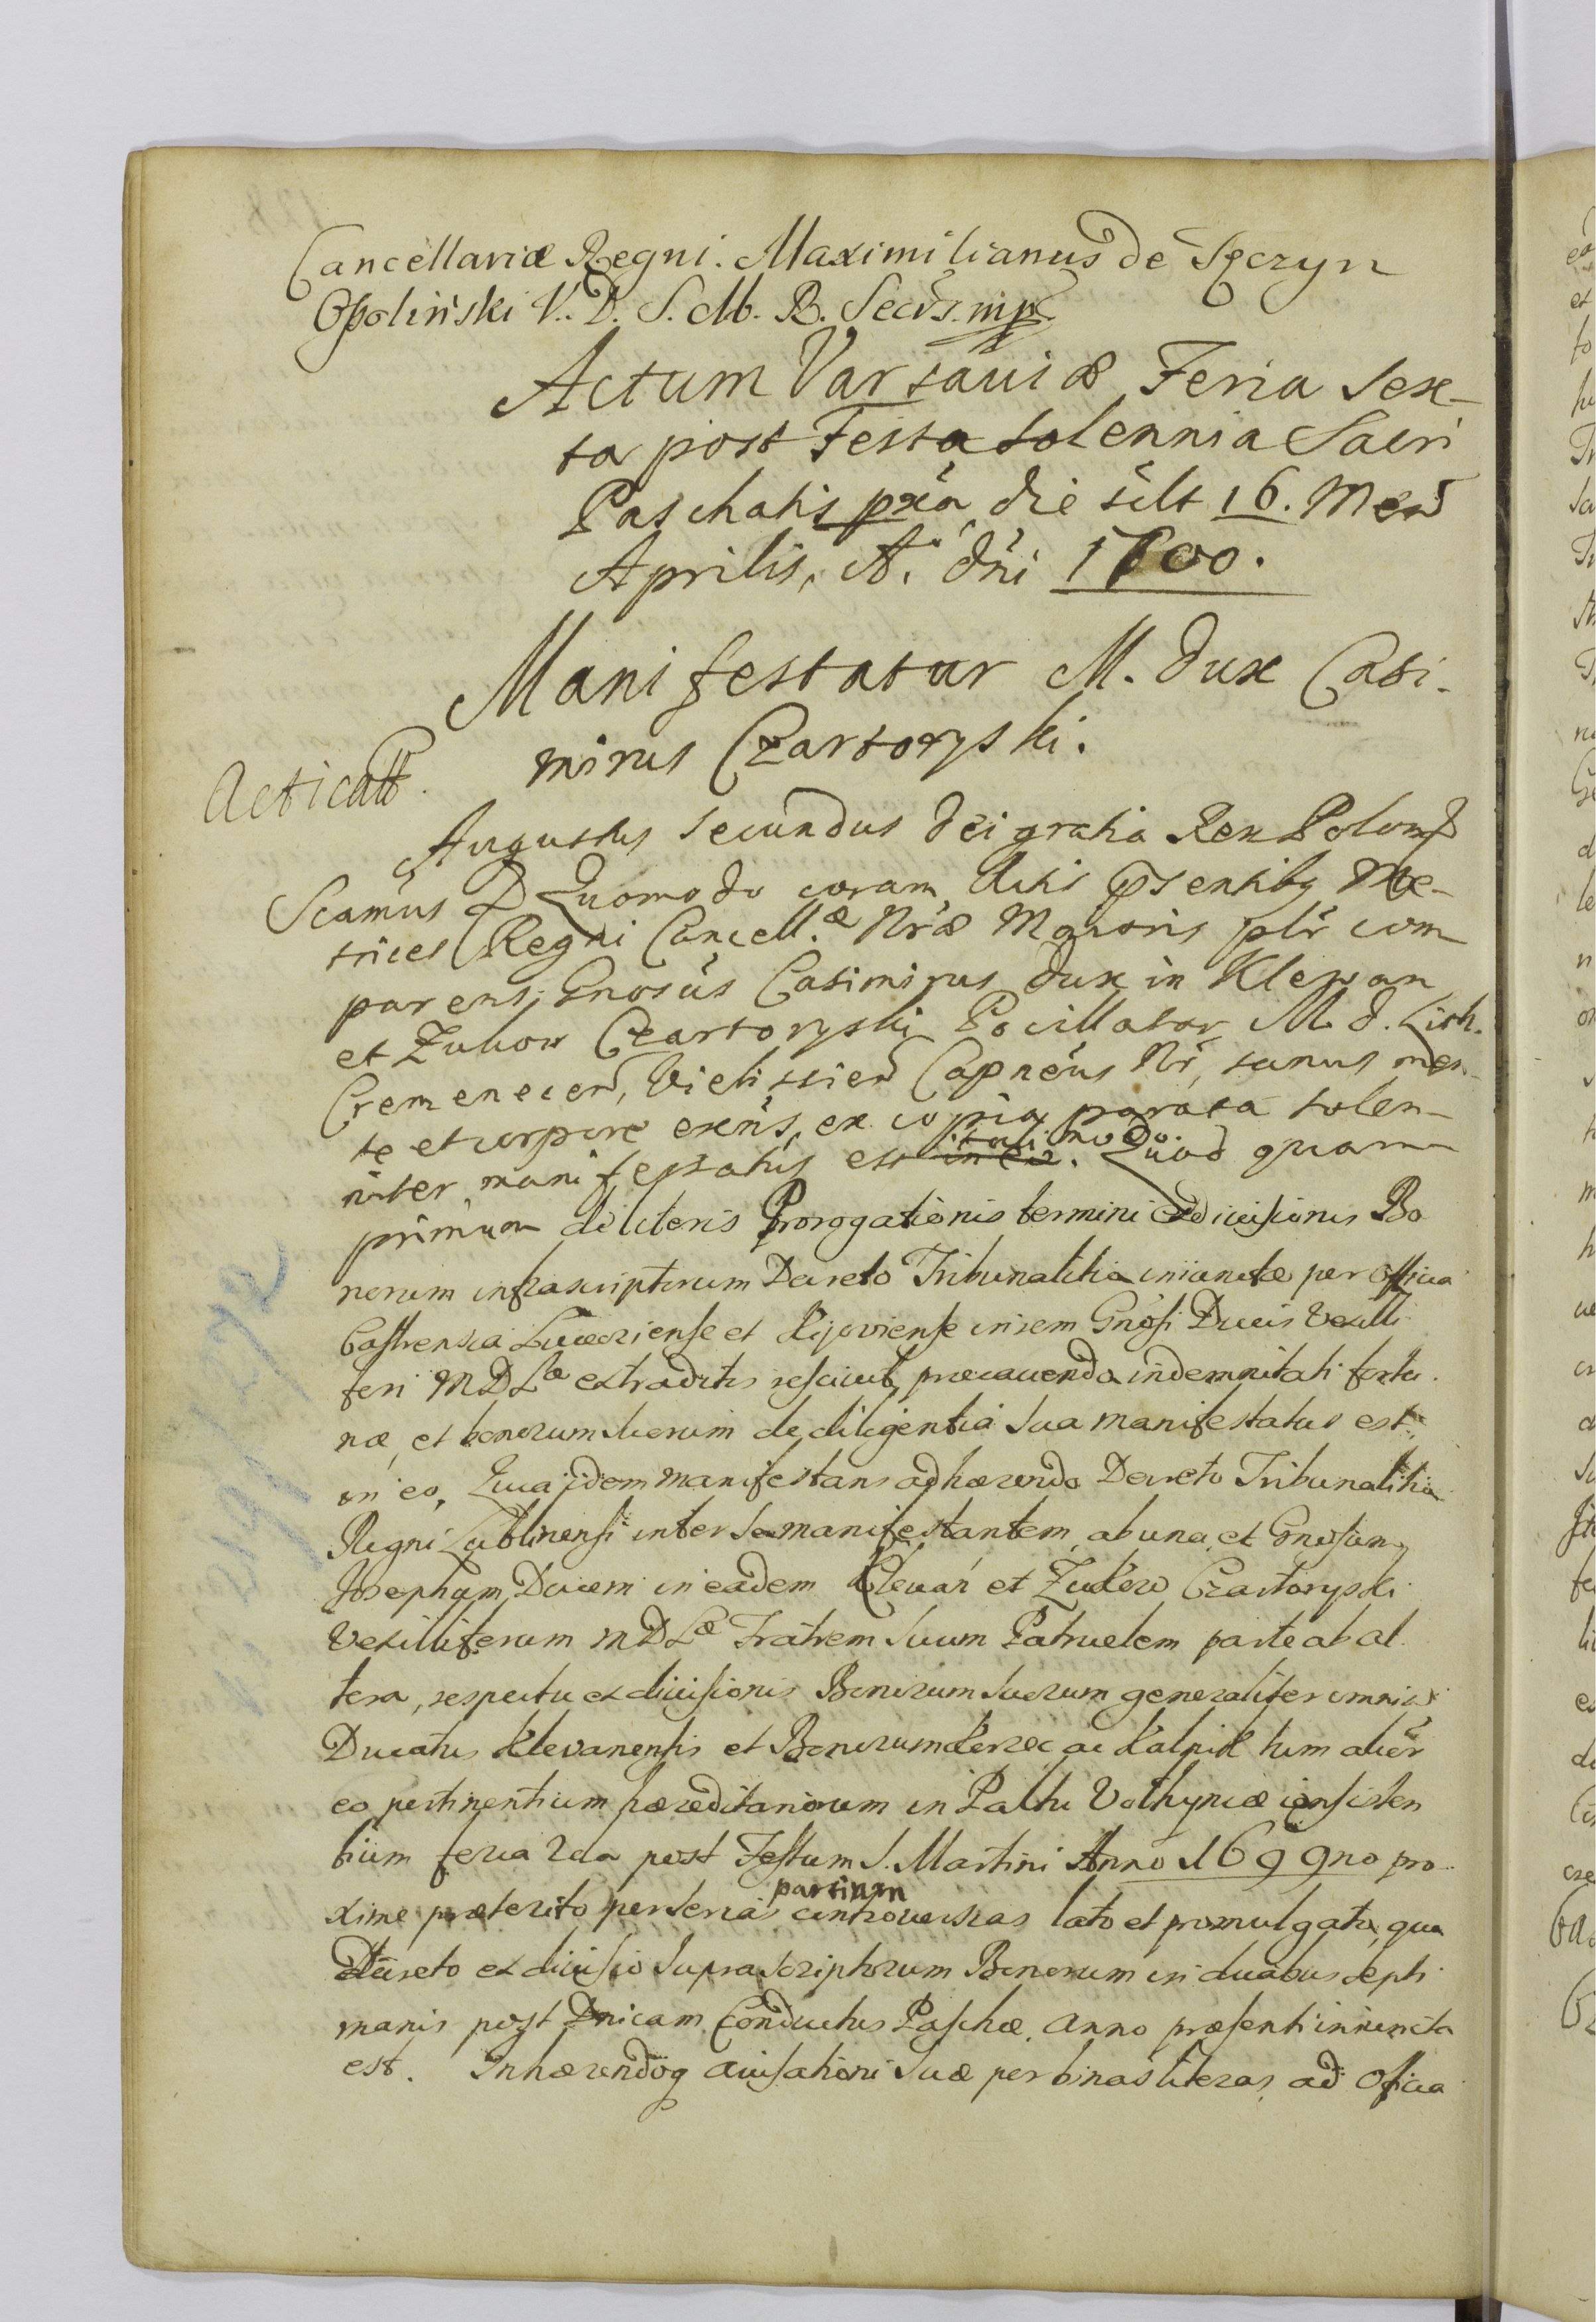 Cancellariæ Regni. Maximilianus de Szczyn
Opoliński V. D. S. M. R. Secrs. mpr
Actum Varsaviæ Feria sex-
ta post Festa solennia Sacri
Paschatis pxia die silt 16. Mens
Aprilis, A. dni 1700.
Manifestatur M. Dux Casi-
mirus Czartoryski.
Acticatt.
Augustus secundus dei gratia Rex Polon
Scamus Quomodo coram Actis psentibq Me-
trices Regni Cancell.æ Nræ Maioris plr com
parens, Gnosus Casimirus dux in Klewan
et Zukow Czartoryski Pocillator M. d. Lith.
Cremenecen, Capneus Nr, sanus men-
te et corpore exns, ex copia parata solen-
niter manifestatus est in eo. tali modo. Quod quam
primum de literis Prorogationis termini Exdivisionis Bo
norum infrascriptorum Decreto Tribunalitia iniunctæ per officia
Castrensia Luceoriense et Kijoviense in rem Gnosi Ducis Vexilli
feri M D Læ extraditis rescivit, præcavendo indemnitati fortu.
næ, et bonorum suorum de diligentia sua manifestatus est
in eo, Quia idem manifestans adhærendo Decreto Tribunalitia
Regni Lublinensi inter se manifestantem ab una, et Gnosum
Josephum Ducem in eadem Klevań et Zukow Czartoryski
Vexilliferum M D Læ Fratrem suum Patruelem parte ab al
tera, respectu exdivisionis Bonorum suorum generaliter omniu
Ducatus Klevanensis et Bonorum ac tum alier
eo pertinentium hæreditariorum in Paltu Volhyniæ consisten
tium feria 2da post Festum S. Martini Anno 1699no pro
xime præterito per serias partium controversias lato et promulgato, quo
Decreto exdivisio suprascriptorum Bonorum in duabus septi
manis post Dnicam Conductus Paschæ anno præsenti iniuncta
est. Inhærendoq avisationi suæ per binas literas ad officia